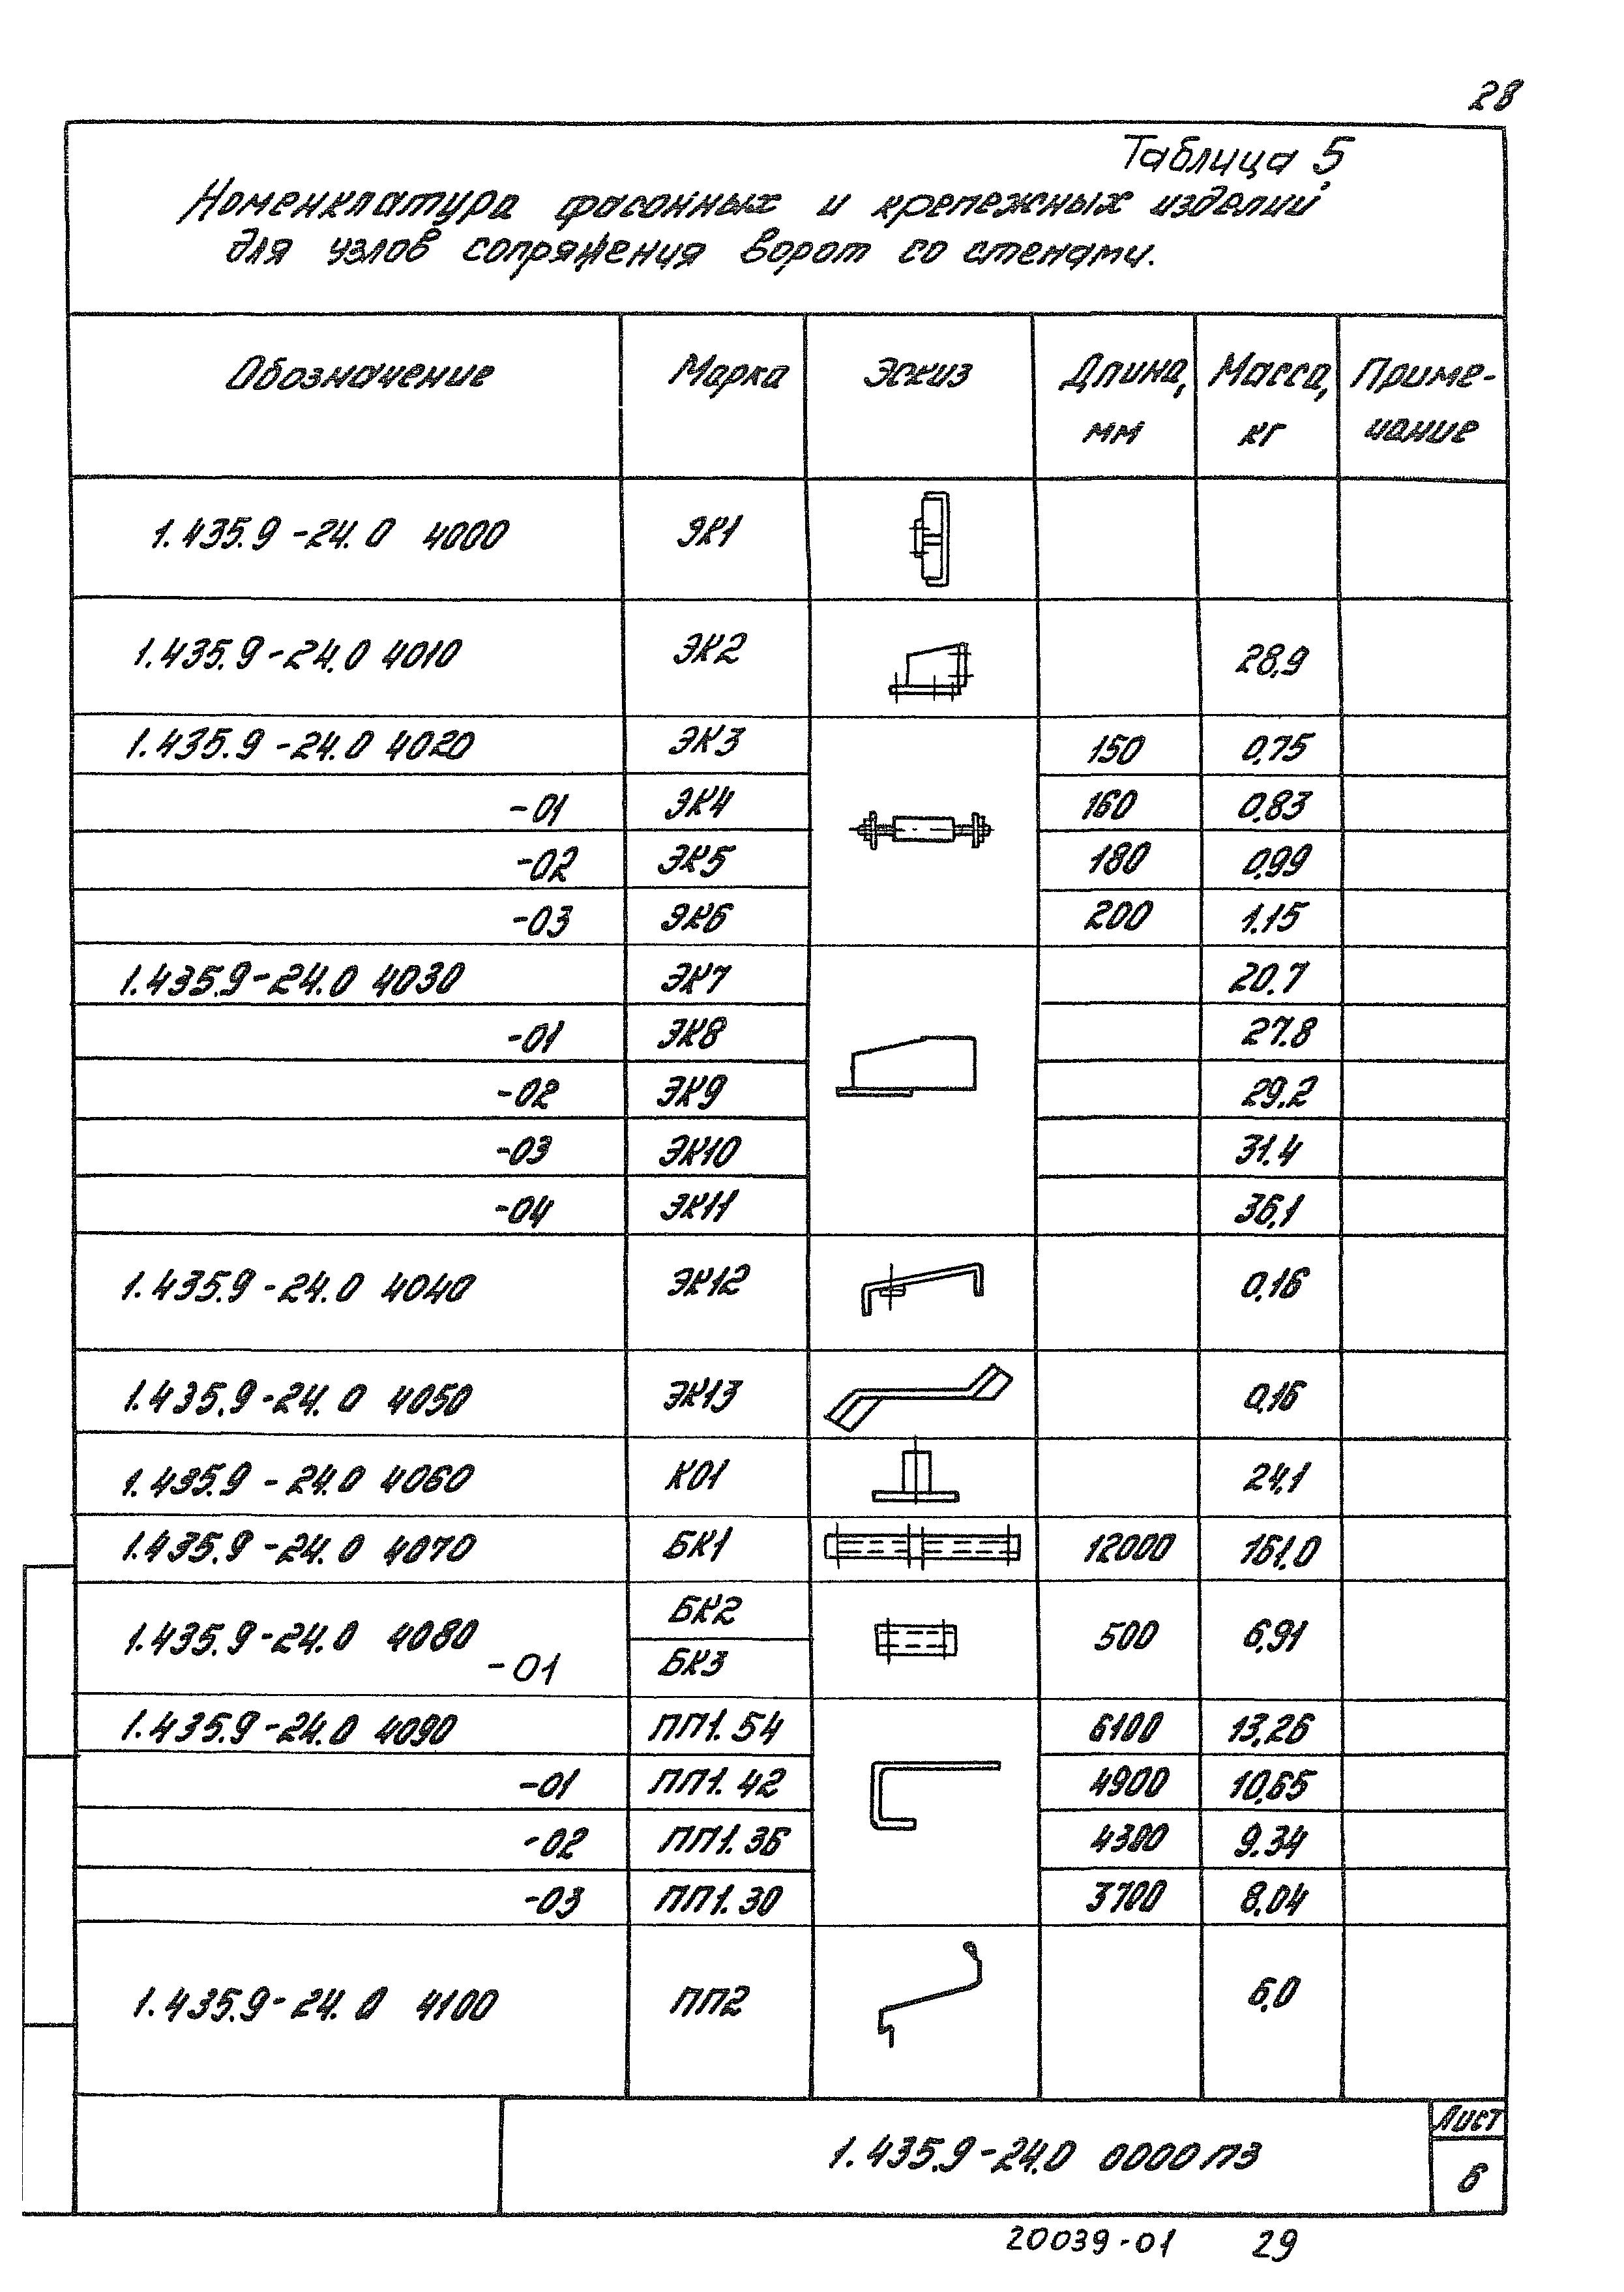 28
Таблица 5
Номенклатура фасонных и крепежных изделий
для узлов сопряжения ворот со стенами.
Обозначение Марка Эскиз Длина, мм Масса, кг Приме-чание
1.435.9-24.0 4000 ЭК1
1.435.9-24.0 4010 ЭК2 28,9
1.435.9-24.0 4020 ЭК3 150 0,75
-01 ЭК4 160 0,83
-02 ЭК5 180 0,99
-03 ЭК6 200 1.15
1.435.9-24.0 4030 ЭК7 20.7
-01 ЭК8 27.8
-02 ЭК9 29.2
-03 ЭК10 31.4
-04 ЭК11 36,1
1.435.9-24.0 4040 ЭК12 0,16
1.435.9-24.0 4050 ЭК13 0,16
1.435.9-24.0 4060 К01 24,1
1.435.9-24.0 4070 БК1 12000 161,0
1.435.9-24.0 4080 БК2 500 6,91
-01 БК3
1.435.9-24.0 4090 ПП1.54 6100 13,26
-01 ПП1.42 4900 10,65
-02 ПП1.36 4300 9.34
-03 ПП1.30 3700 8,04
1.435.9-24.0 4100 ПП2 6,0
1.435.9-24.0 0000 ПЗ
Лист
6
20039-01 29